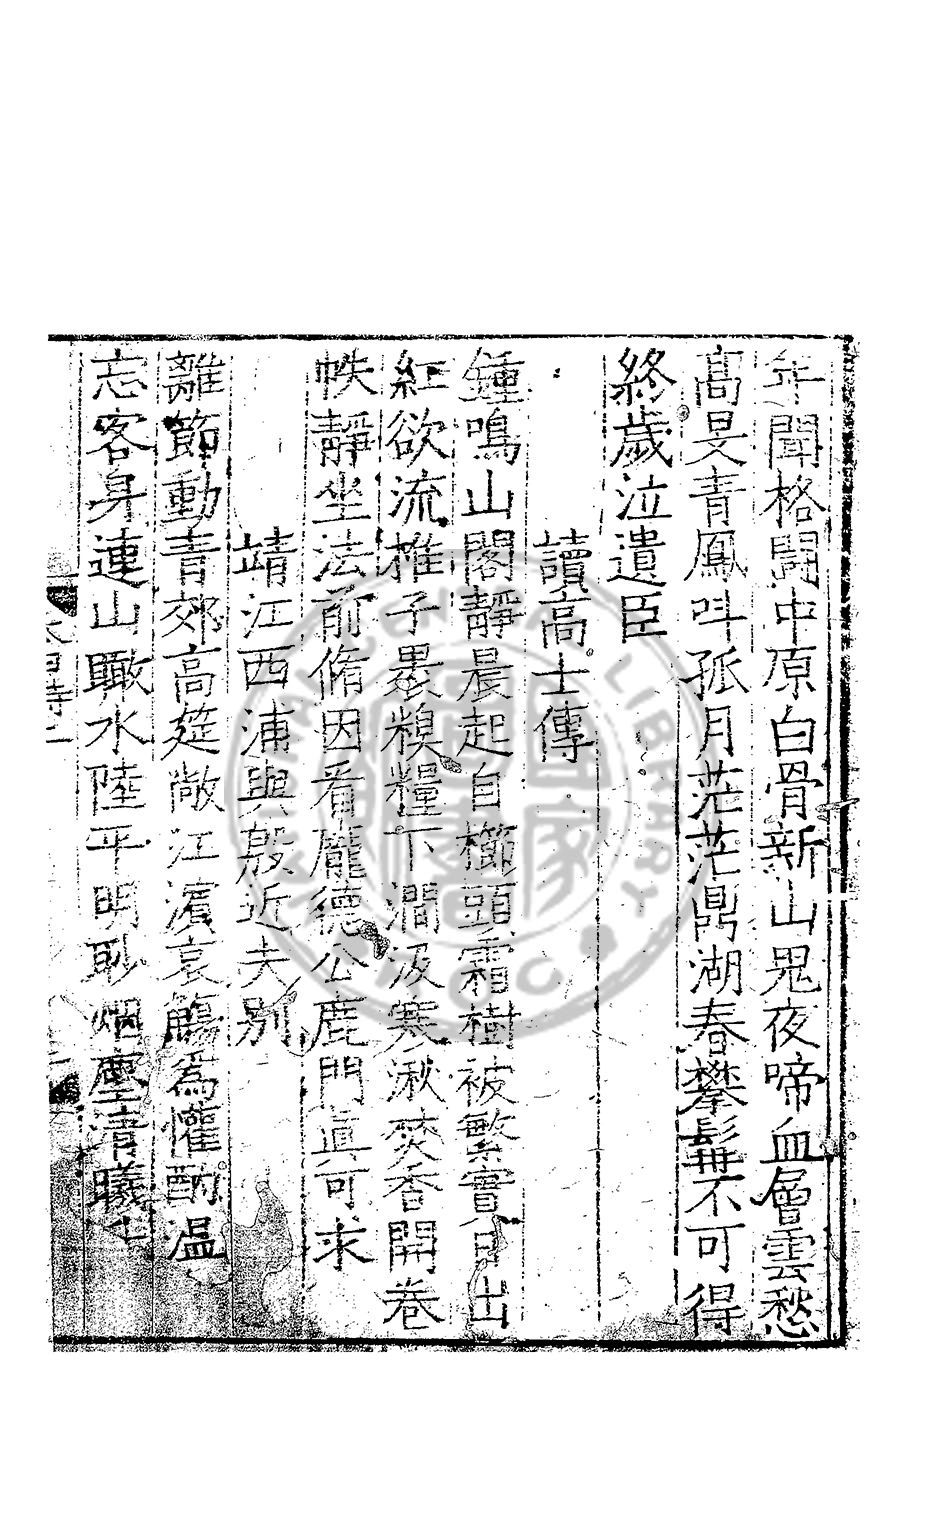 年聞格鬪中原白骨新山鬼夜啼血層雲愁
高旻青鳳呌孤月茫茫鼎湖春攀髯不可得
終歲泣遺臣
讀高士傳
鍾鳴山閣靜晨起自櫛頭霜樹被繁實日出
紅欲流推子暴糗糧下澗汲寒湫焚香開卷
帙靜坐法前脩因看龐德公鹿門眞可求
靖江西浦與殷近夫別
離節動青郊高筵敞江濱哀觴為懽酌温
忘客身連山瞰水陸平明眇烟塵清曦